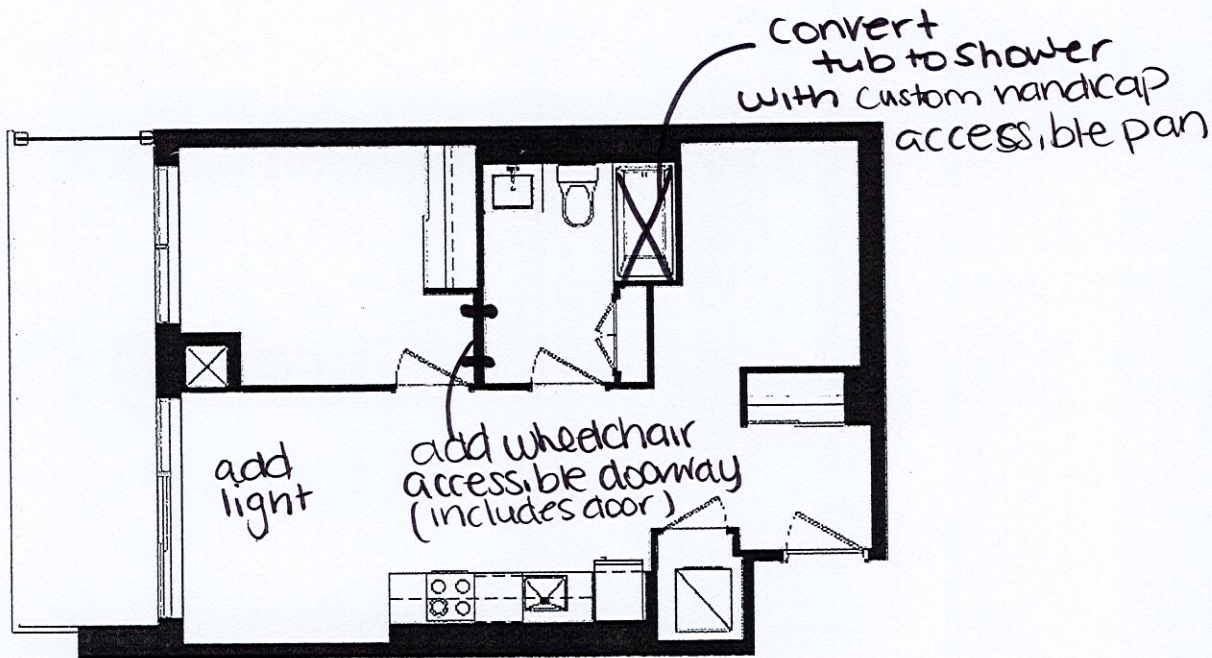 convert
tub to shower
with custom handicap
accessible pan
add wheelchair
accessible doorway
(includes door)
add
light